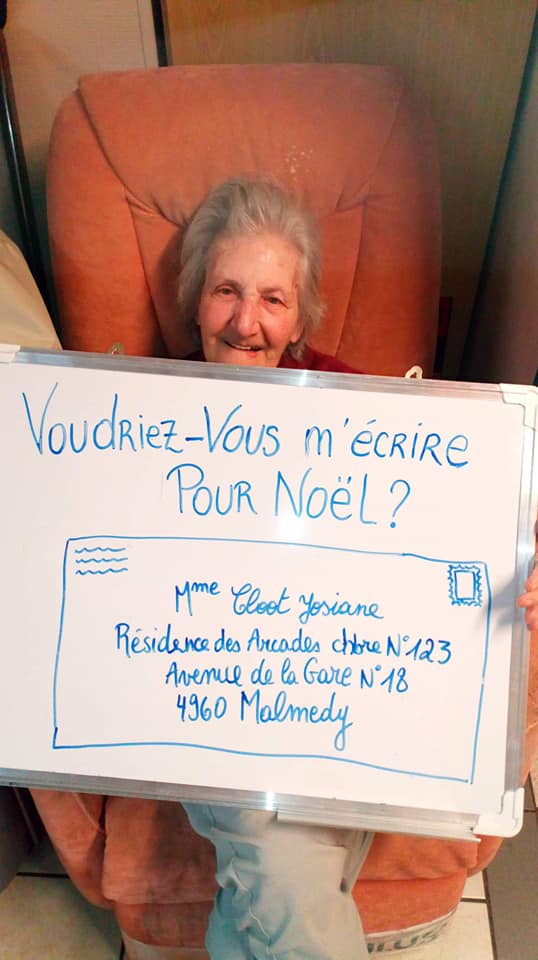 Voudriez-Vous m'écrire
Pour Noël ?
Mme Cloot Josiane
Résidence des Arcades chbre N°123
Avenue de la Gare N°18
4960 Malmedy